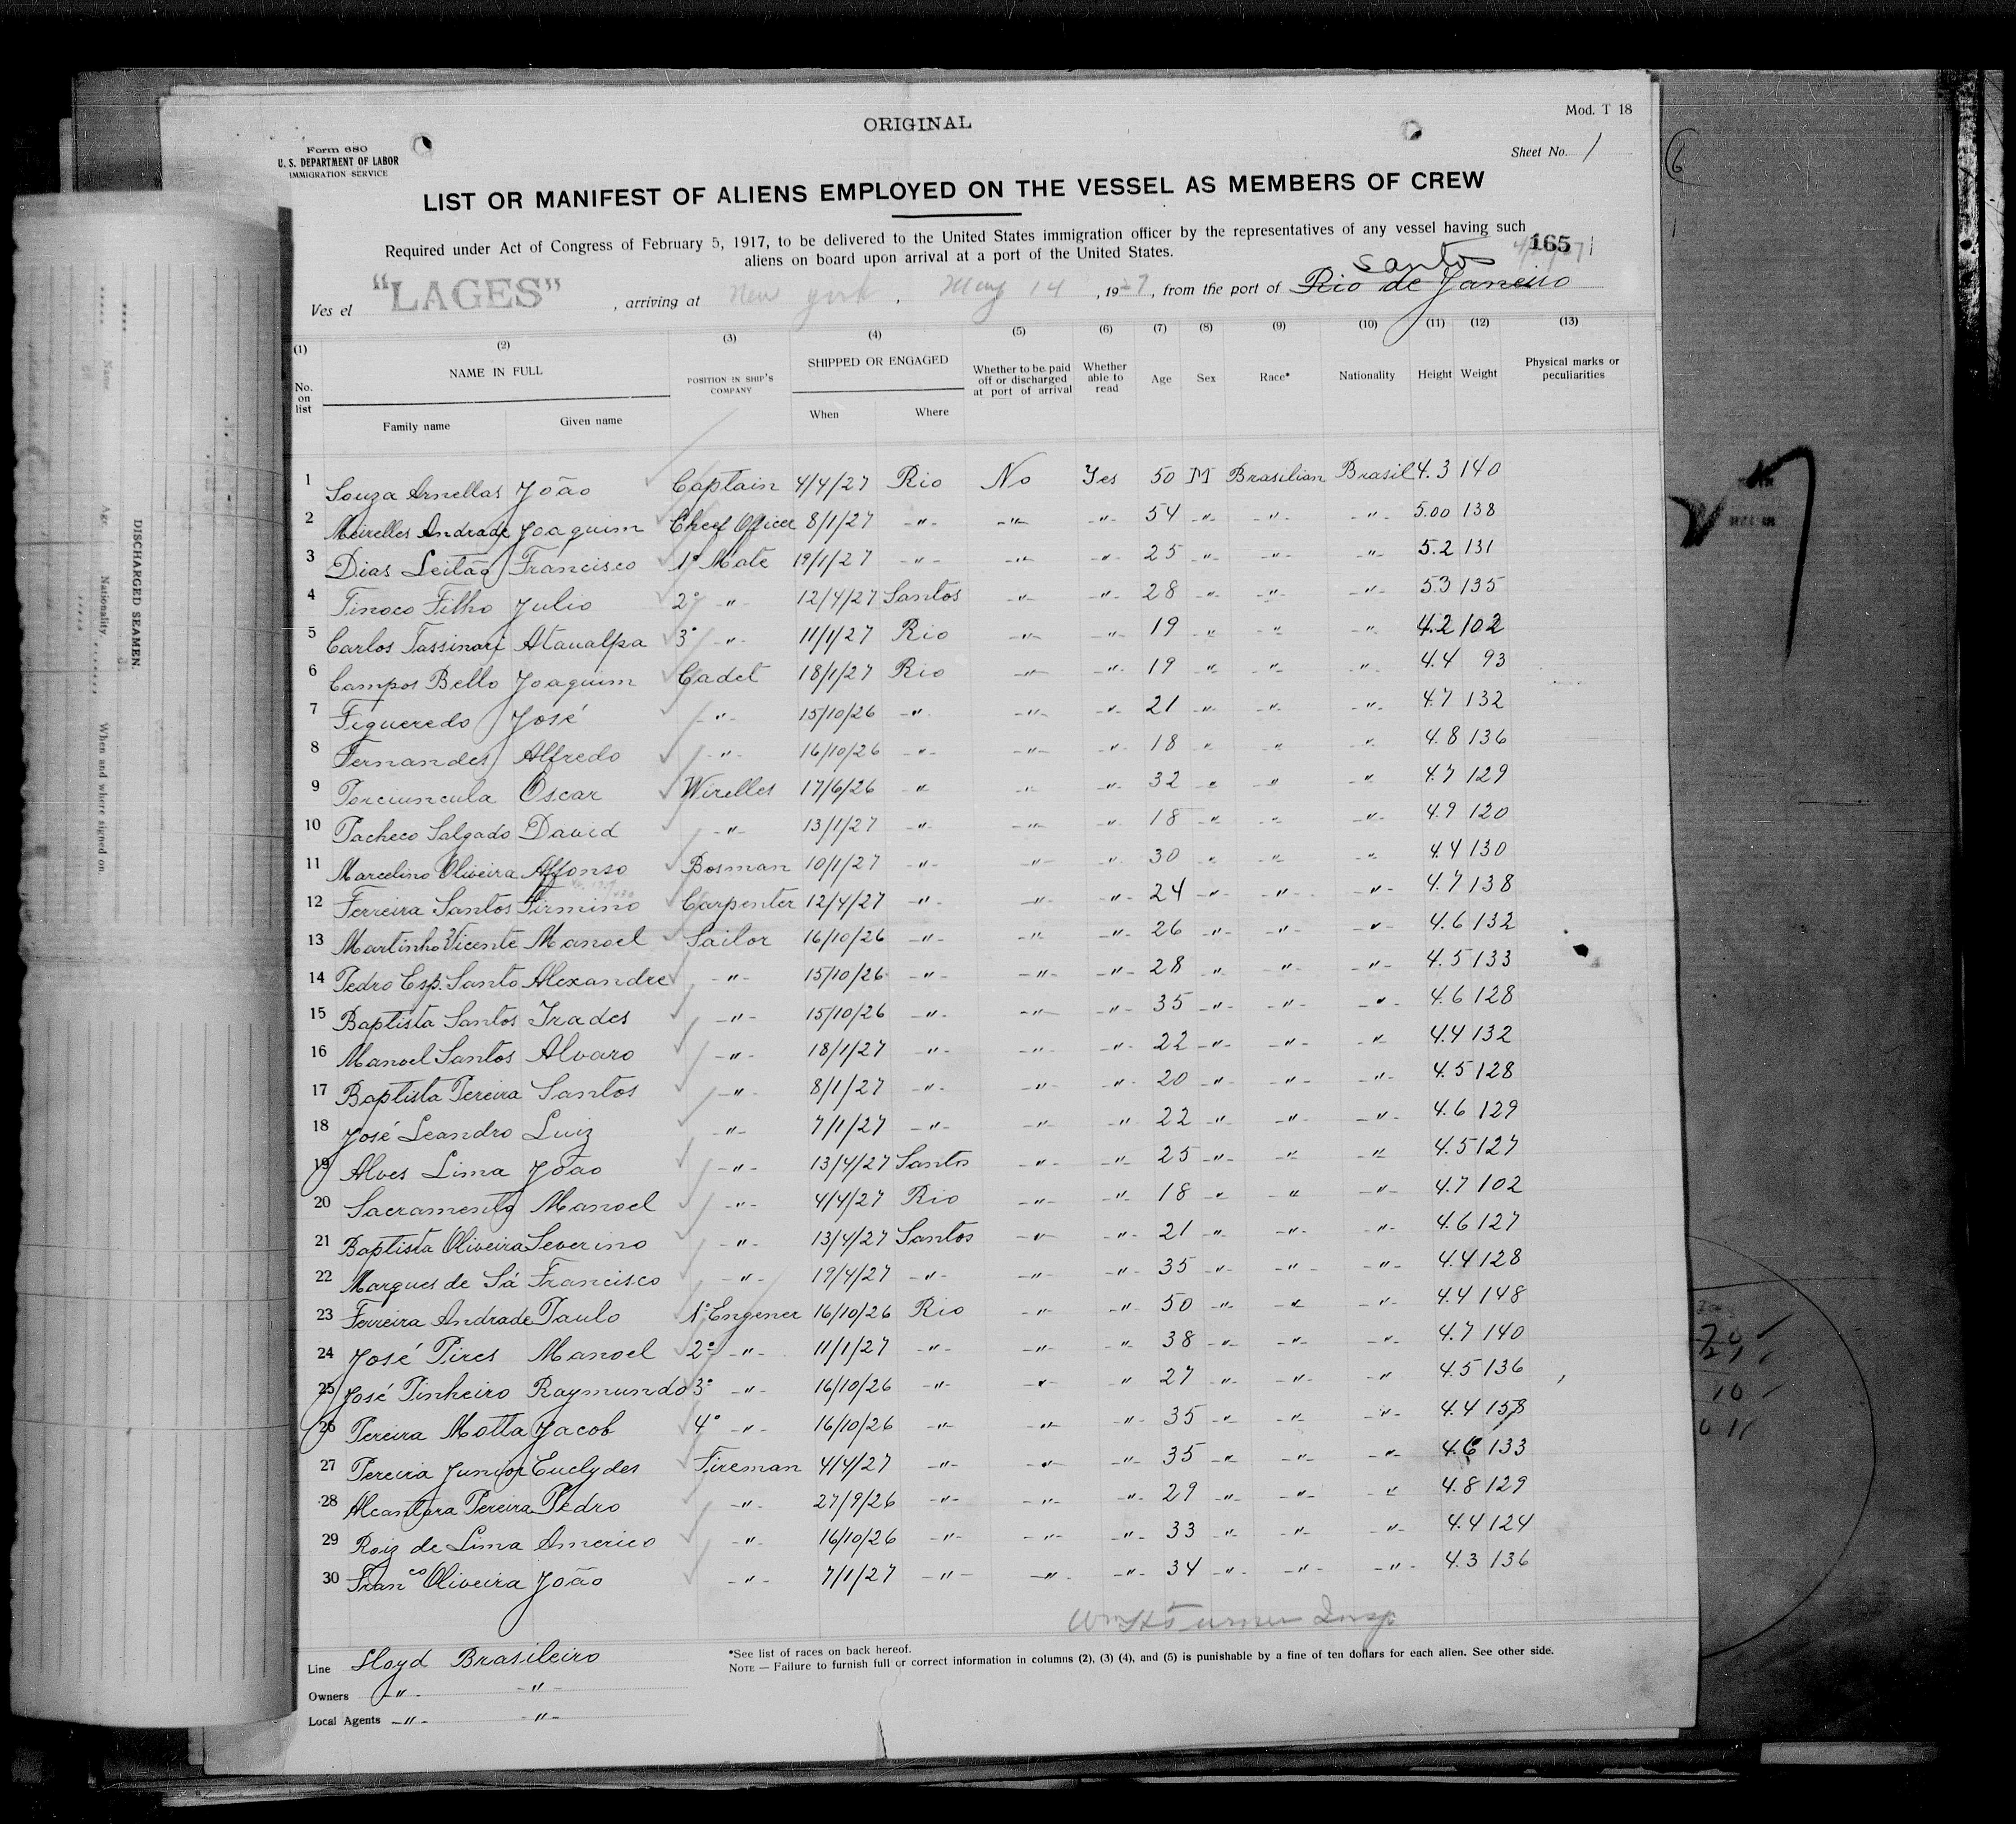 ORIGINAL
Mod. T 18
Form 680
U. S. DEPARTMENT OF LABOR
IMMIGRATION SERVICE
Sheet No. 1
LIST OR MANIFEST OF ALIENS EMPLOYED ON THE VESSEL AS MEMBERS OF CREW
Required under Act of Congress of February 5, 1917, to be delivered to the United States immigration officer by the representatives of any vessel having such
aliens on board upon arrival at a port of the United States.
165
Santos
Ves el "LAGES" , arriving at New York , May 14 , 1927, from the port of Rio de Janeiro
(1) (2) (3) (4) (5) (6) (7) (8) (9) (10) (11) (12) (13)
No. on list
NAME IN FULL
Family name Given name
POSITION IN SHIP'S COMPANY
SHIPPED OR ENGAGED
When Where
Whether to be paid off or discharged at port of arrival
Whether able to read
Age Sex Race* Nationality Height Weight
Physical marks or peculiarities
1 Souza Arnellas João Captain 4/4/27 Rio No Yes 50 M Brasilian Brasil 4.3 140
2 Meirelles Andrade Joaquim Cheef Officer 8/1/27 -"- -"- -"- 54 -"- -"- -"- 5.00 138
3 Dias Leitão Francisco 1º Mate 19/1/27 -"- -"- -"- 25 -"- -"- -"- 5.2 131
4 Tinoco Filho Julio 2º -"- 12/4/27 Santos -"- -"- 28 -"- -"- -"- 53 135
5 Carlos Tassinari Ataualpa 3º -"- 11/1/27 Rio -"- -"- 19 -"- -"- -"- 4.2 102
6 Campos Bello Joaquim Cadet 18/1/27 Rio -"- -"- 19 -"- -"- -"- 4.4 93
7 Figueredo José -"- 15/10/26 -"- -"- -"- 21 -"- -"- -"- 4.7 132
8 Fernandes Alfredo -"- 16/10/26 -"- -"- -"- 18 -"- -"- -"- 4.8 136
9 Porciuncula Oscar Wirelles 17/6/26 -"- -"- -"- 32 -"- -"- -"- 4.7 129
10 Pacheco Salgado David -"- 13/1/27 -"- -"- -"- 18 -"- -"- -"- 4.9 120
11 Marcelino Oliveira Affonso Bosman 10/1/27 -"- -"- -"- 30 -"- -"- -"- 4.4 130
12 Ferreira Santos Firmino Carpenter 12/4/27 -"- -"- -"- 24 -"- -"- -"- 4.7 138
13 Martinho Vicente Manoel Sailor 16/10/26 -"- -"- -"- 26 -"- -"- -"- 4.6 132
14 Pedro Esp. Santo Alexandre -"- 15/10/26 -"- -"- -"- 28 -"- -"- -"- 4.5 133
15 Baptista Santos Irades -"- 15/10/26 -"- -"- -"- 35 -"- -"- -"- 4.6 128
16 Manoel Santos Alvaro -"- 18/1/27 -"- -"- -"- 22 -"- -"- -"- 4.4 132
17 Baptista Pereira Santos -"- 8/1/27 -"- -"- -"- 20 -"- -"- -"- 4.5 128
18 José Leandro Luiz -"- 7/1/27 -"- -"- -"- 22 -"- -"- -"- 4.6 129
19 Alves Lima João -"- 13/4/27 Santos -"- -"- 25 -"- -"- -"- 4.5 127
20 Sacramento Manoel -"- 4/4/27 Rio -"- -"- 18 -"- -"- -"- 4.7 102
21 Baptista Oliveira Severino -"- 13/4/27 Santos -"- -"- 21 -"- -"- -"- 4.6 127
22 Marques de Sá Francisco -"- 19/4/27 -"- -"- -"- 35 -"- -"- -"- 4.4 128
23 Ferreira Andrade Paulo 1º Engener 16/10/26 Rio -"- -"- 50 -"- -"- -"- 4.4 148
24 José Pires Manoel 2º -"- 11/1/27 -"- -"- -"- 38 -"- -"- -"- 4.7 140
25 José Pinheiro Raymundo 3º -"- 16/10/26 -"- -"- -"- 27 -"- -"- -"- 4.5 136
26 Pereira Motta Jacob 4º -"- 16/10/26 -"- -"- -"- 35 -"- -"- -"- 4.4 158
27 Pereira Junior Euclydes Fireman 4/4/27 -"- -"- -"- 35 -"- -"- -"- 4.6 133
28 Alcantara Pereira Pedro -"- 27/9/26 -"- -"- -"- 29 -"- -"- -"- 4.8 129
29 Roiz de Lima Americo -"- 16/10/26 -"- -"- -"- 33 -"- -"- -"- 4.4 124
30 Franco Oliveira João -"- 7/1/27 -"- -"- -"- 34 -"- -"- -"- 4.3 136
Wm H Turner Insp
Line Lloyd Brasileiro
Owners -"- -"-
Local Agents -"- -"-
*See list of races on back hereof.
NOTE — Failure to furnish full or correct information in columns (2), (3) (4), and (5) is punishable by a fine of ten dollars for each alien. See other side.
DISCHARGED SEAMEN.
Name Age Nationality When and where signed on.